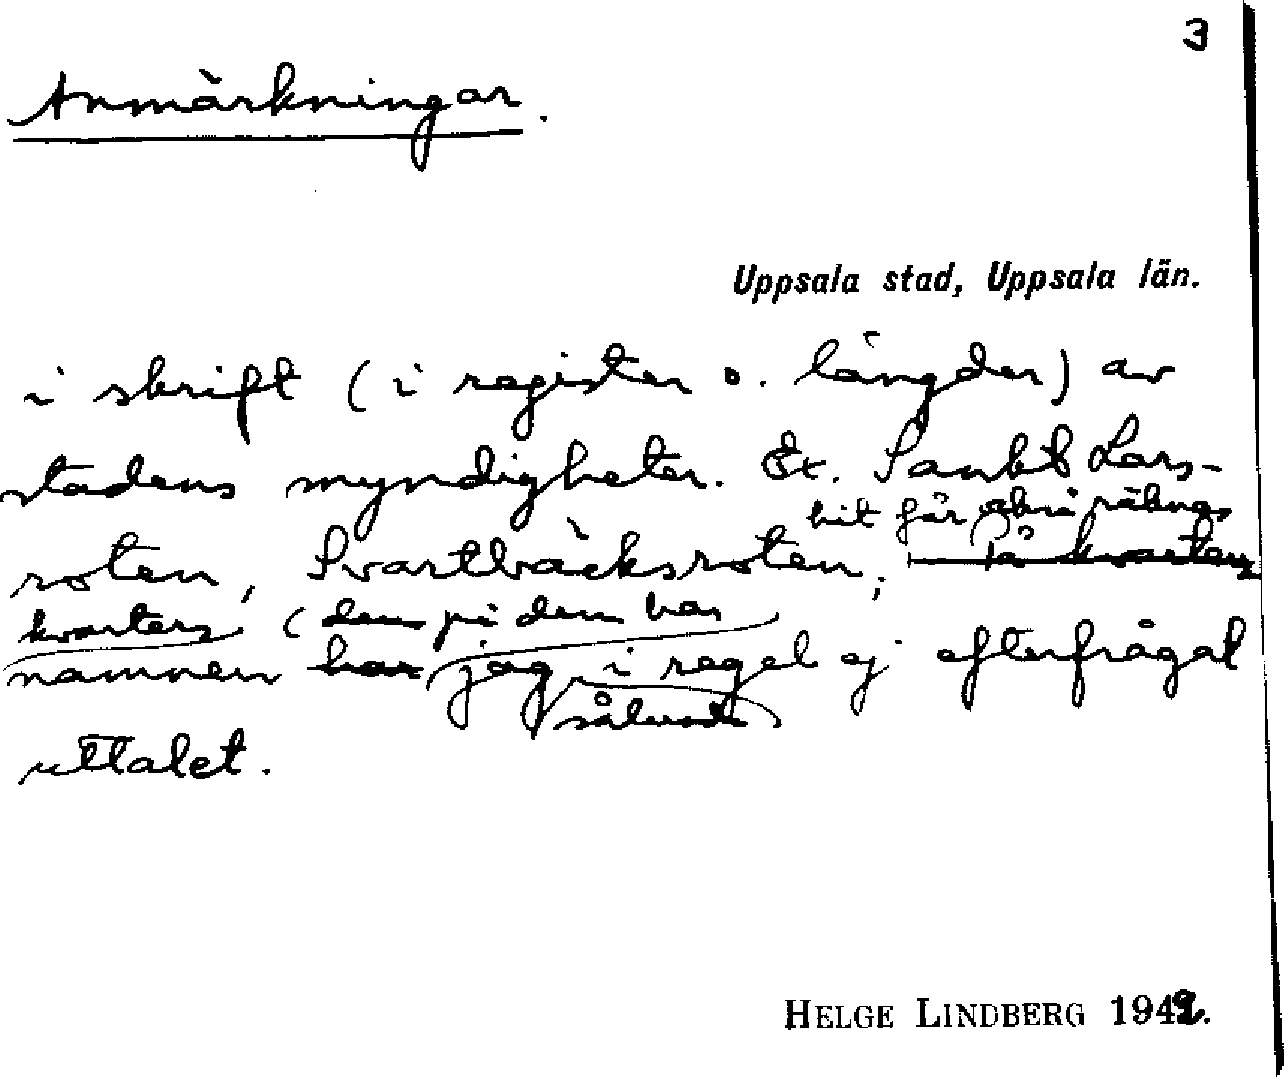 3
Anmärkningar.
Uppsala stad, Uppsala län.
i skrift (i register o. längder) av
stadens myndigheter. Ex. Sankt Lars-
hit får räknas
roten, Svartbäcksroten; På kvarters
kvarters (den på den har
namnen har jag i regel ej efterfrågat
sålunda
uttalet.
HELGE LINDBERG 1942.